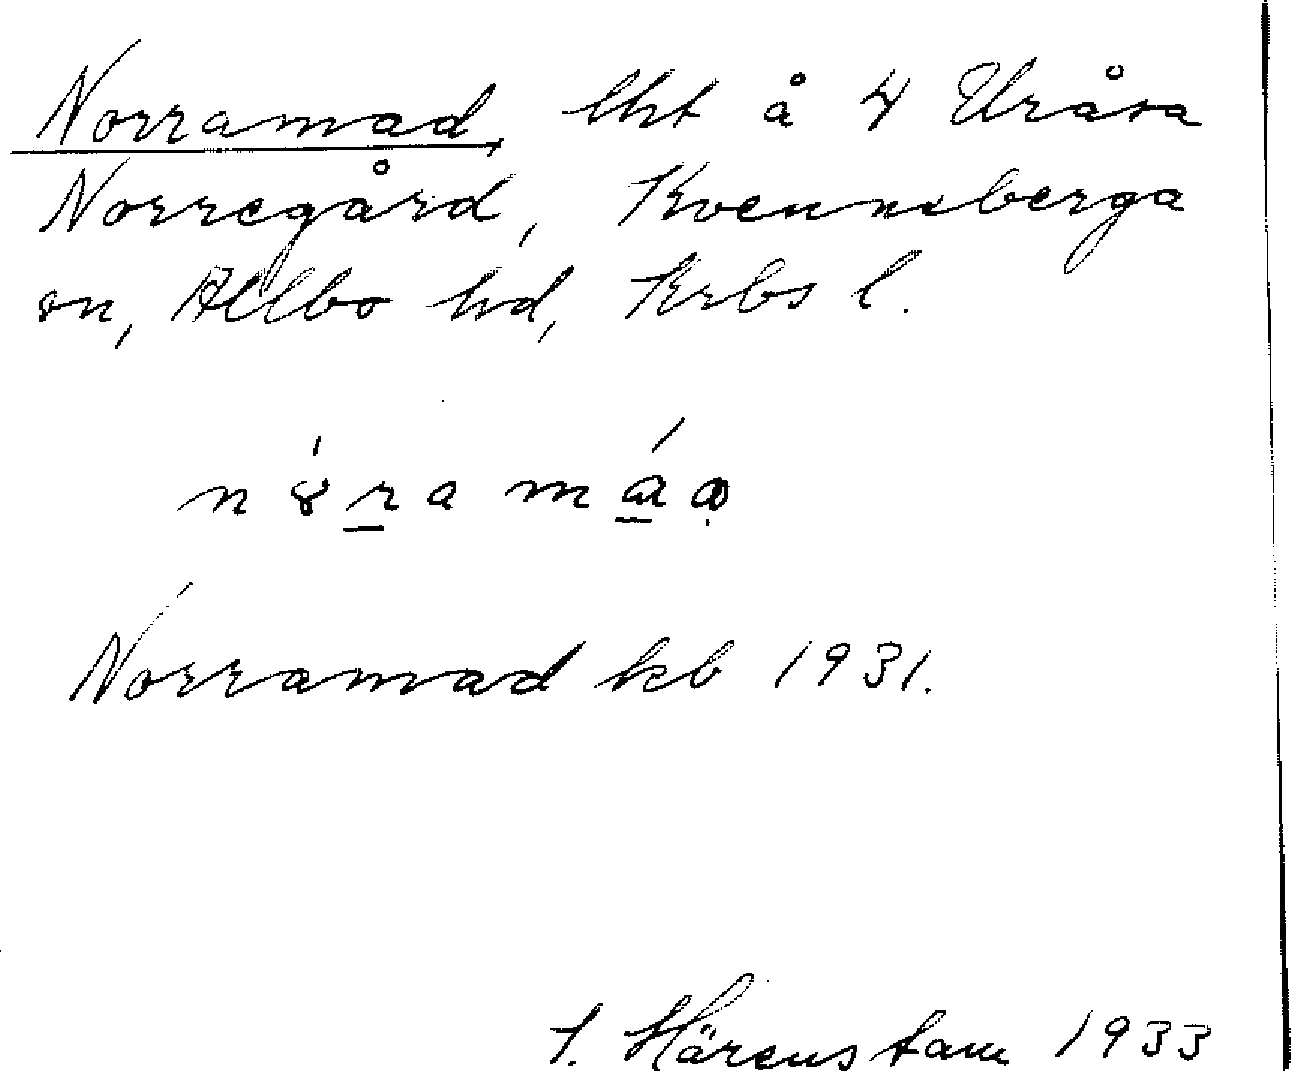 Norramad, lht å 4 Uråsa
Norregård, Kvenneberga
sn, Allbo hd, Krbs l.
Norramad kb 1931.
Härenstam 1933